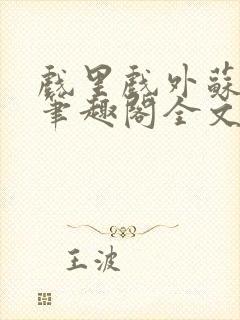 戲里戲外蘇
筆趣閣全文
王波